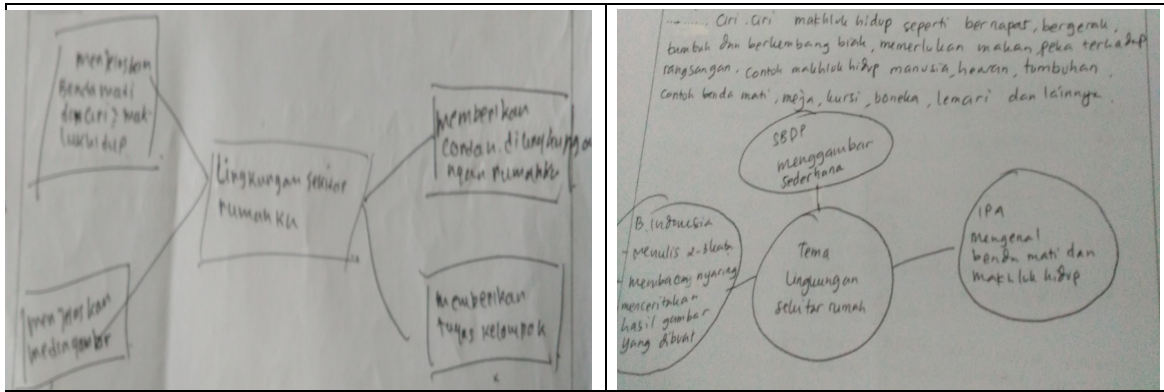 menjelaskan
Benda mati
dan ciri2 mak
luk hidup
memberikan
contoh dilingkunga
ngan rumahku
Lingkungan sekitar
rumahku
menjelaskan
media gambar
memberikan
tugas kelompok
Ciri-Ciri makhluk hidup seperti bernapas, bergerak,
tumbuh dan berkembang biak, memerlukan makan peka terhadap
rangsangan. Contoh makhluk hidup manusia, hewan, tumbuhan.
Contoh benda mati, meja, kursi, boneka, lemari dan lainnya.
SBDP
menggambar
sederhana
B. Indonesia
- menulis 2-3 kata
- membaca nyaring
menceritakan
hasil gambar
yang dibuat
Tema
Lingkungan
sekitar rumah
IPA
mengenal
benda mati dan
makhluk hidup